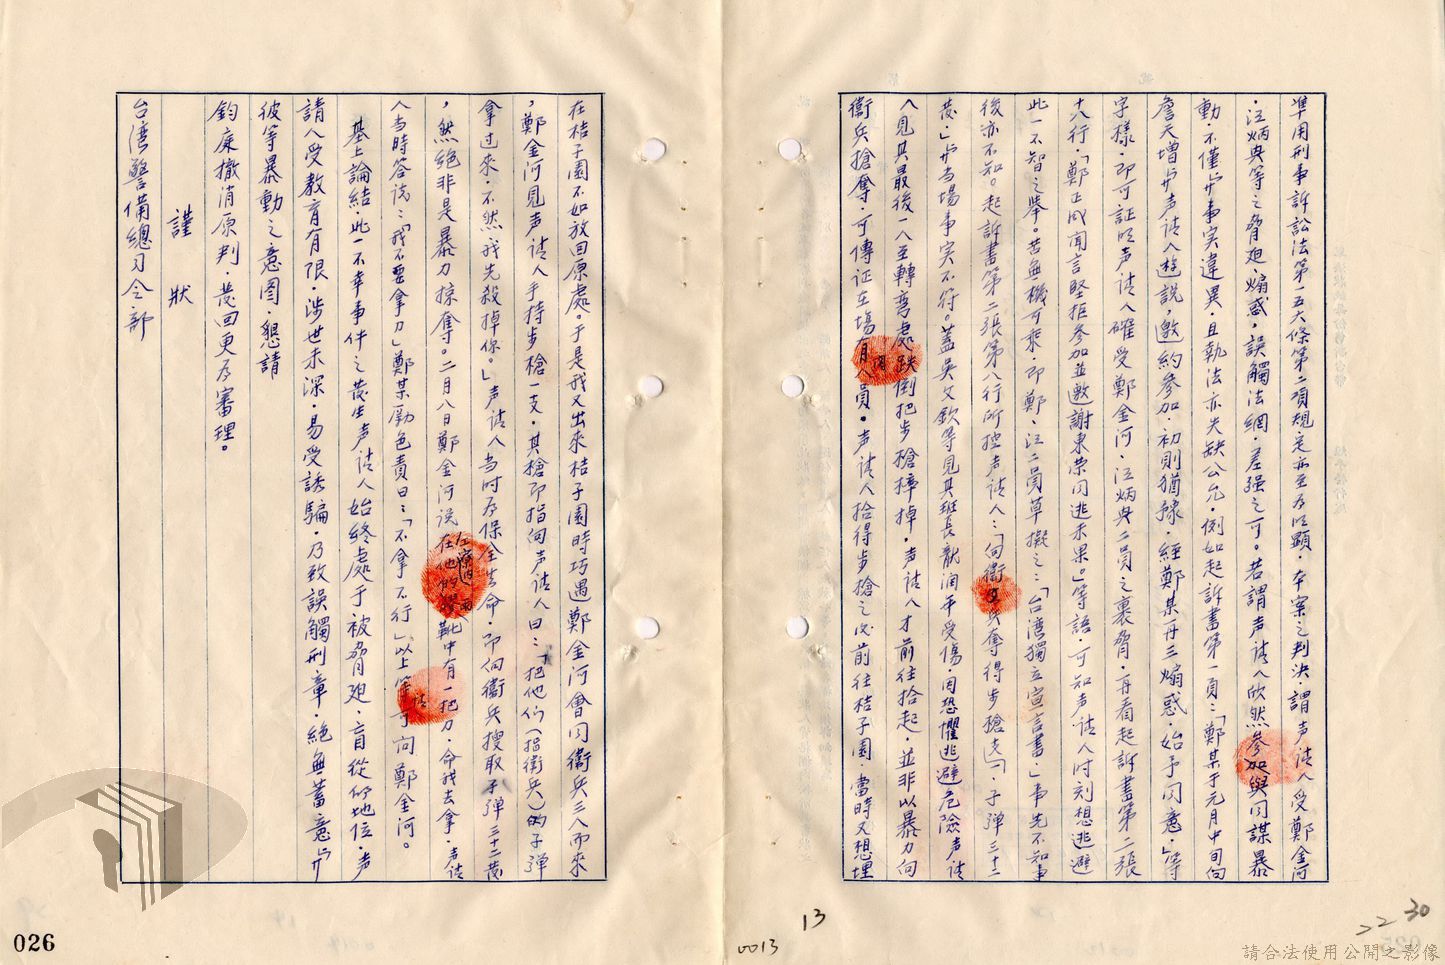 準用刑事訴訟法第一五六條第二項規定亦至為明顯・本案之判決・謂声請人受鄭金河
・江炳興等之脅廹・煽惑・誤觸法網・差强之可。若謂声請人欣然參加與同謀暴
動・不僅与事实違異・且執法亦失缺公允・例如起訴書第一頁：「鄭某于元月中旬向
詹天增与声请人遊說・邀約參加・初則猶豫・經鄭某再三煽惑・始予同意・」等
字樣・即可証明声请人確受鄭金河・江炳興二員之裹脅・再看起訴書第二張
十八行・「鄭正成聞言堅拒參加並邀謝東荣同逃未果。」等語・可知声请人时刻想逃避
此一不智之举。苦無機可乘・即鄭、江二員草擬之：「台湾獨立宣言書・」事先不知事
後亦不知。起訴書第二張第八行所控声请人：「向衛兵奪得步槍支・子彈三十二
發・」与当場事实不符。蓋吳文欽等見其班長龍润年受傷・因恐懼逃避危險声请
人見其最後一人至轉弯處跌倒把步槍摔掉・声请人才前往拾起・並非以暴力向
衛兵搶奪・可傳証在場有人員。声请人拾得步槍之後前往桔子園・當時又想埋
在桔子園不如放回原處。于是我又出來桔子園時巧遇鄭金河會同衛兵三人而來
，鄭金河見声请人手持步槍一支・其槍即指向声请人曰：「把他们（指衛兵）的子彈
拿过來・不然我先殺掉你。」声请人当时为保全生命・即向衛兵搜取子弹三十二發
，然絕非是暴力掠奪。二月八日鄭金河说在他的靴中有一把刀・命我去拿・声请
人当時答说：「我不要拿刀」鄭某勵色責曰：「不拿不行」以上等可问鄭金河。
基上論結・此一不幸事件之發生声请人始終處于被脅廹・盲從的地位・声
請人受教育有限・涉世未深・易受誘騙・乃致誤觸刑章・絕無蓄意与
彼等暴動之意图・懇請
鈞庭撤消原判・發回更为審理。
謹狀
台湾警備總司令部
026
0013
13
22
30
請合法使用公開之影像